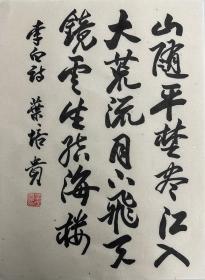 山随平楚尽江入
大荒流月下飞天
镜云生结海楼
李白诗 叶培贵